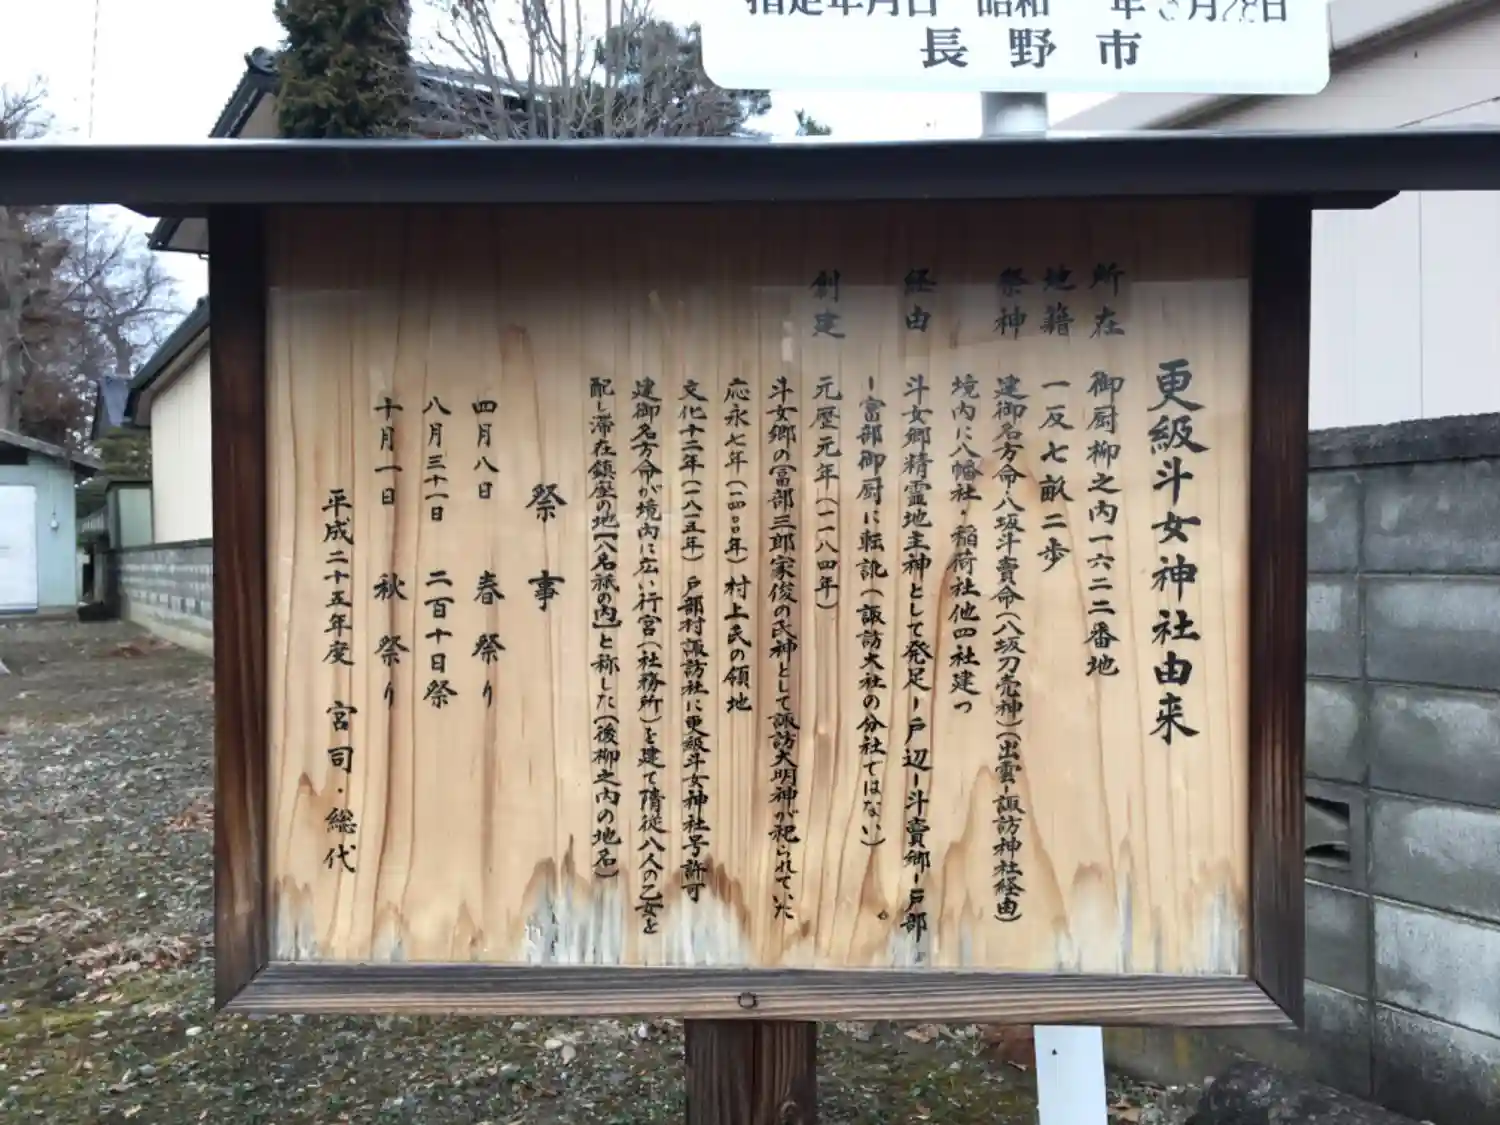 指定年月日 昭和 年 月28日
長野市
更級斗女神社由来
所在 御厨柳之内一六二二番地
地籍 一反七畝二歩
祭神 建御名方命・八坂斗賣命(八坂刀売神)(出雲ー諏訪神社経由)
境内に八幡社・稲荷社他四社建つ
経由 斗女郷精霊地主神として発足ー戸辺ー斗賣郷ー戸部
ー富部御厨に転訛(諏訪大社の分社ではない)
創建 元歴元年(一一八四年)
斗女郷の冨部三郎家俊の氏神として諏訪大明神が祀られていた
応永七年(一四〇〇年)村上氏の領地
文化十二年(一八一五年)戸部村諏訪社に更級斗女神社号許可
建御名方命が境内に広い行宮(社務所)を建て隋従八人の乙女を
配し滞在鎮座の地【八名祇の内】と称した(後柳之内の地名)
祭事
四月八日 春祭り
八月三十一日 二百十日祭
十月一日 秋祭り
平成二十五年度 宮司・総代